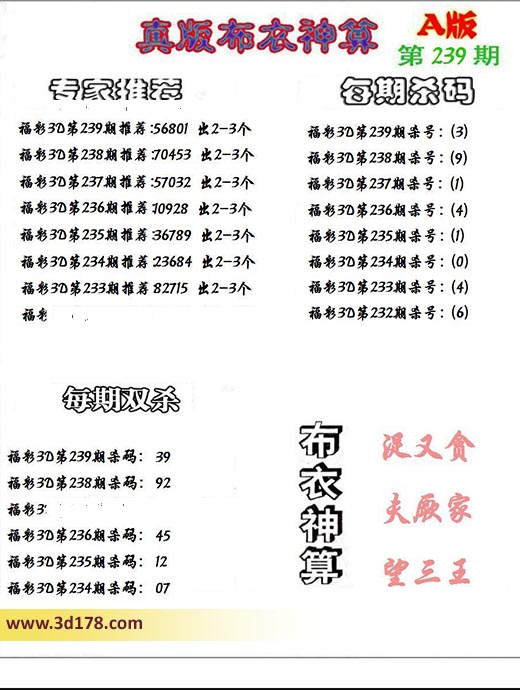 真版布衣神算
A版
第 239 期
专家推荐
福彩3D第239期推荐:56801 出2-3个
福彩3D第238期推荐:70453 出2-3个
福彩3D第237期推荐:57032 出2-3个
福彩3D第236期推荐:10928 出2-3个
福彩3D第235期推荐:36789 出2-3个
福彩3D第234期推荐:23684 出2-3个
福彩3D第233期推荐:82715 出2-3个
福彩
每期杀码
福彩3D第239期杀号：(3)
福彩3D第238期杀号：(9)
福彩3D第237期杀号：(1)
福彩3D第236期杀号：(4)
福彩3D第235期杀号：(1)
福彩3D第234期杀号：(0)
福彩3D第233期杀号：(4)
福彩3D第232期杀号：(6)
每期双杀
福彩3D第239期杀码： 39
福彩3D第238期杀码： 92
福彩3
福彩3D第236期杀码： 45
福彩3D第235期杀码： 12
福彩3D第234期杀码： 07
布衣神算
泥又贪
夫厥家
望三王
www.3d178.com